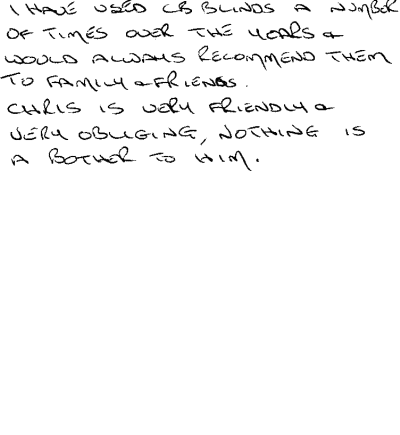 I HAVE USED CB BLINDS A NUMBER
OF TIMES OVER THE YEARS &
WOULD ALWAYS RECOMMEND THEM
TO FAMILY & FRIENDS.
CHRIS IS VERY FRIENDLY &
VERY OBLIGING, NOTHING IS
A BOTHER TO HIM.